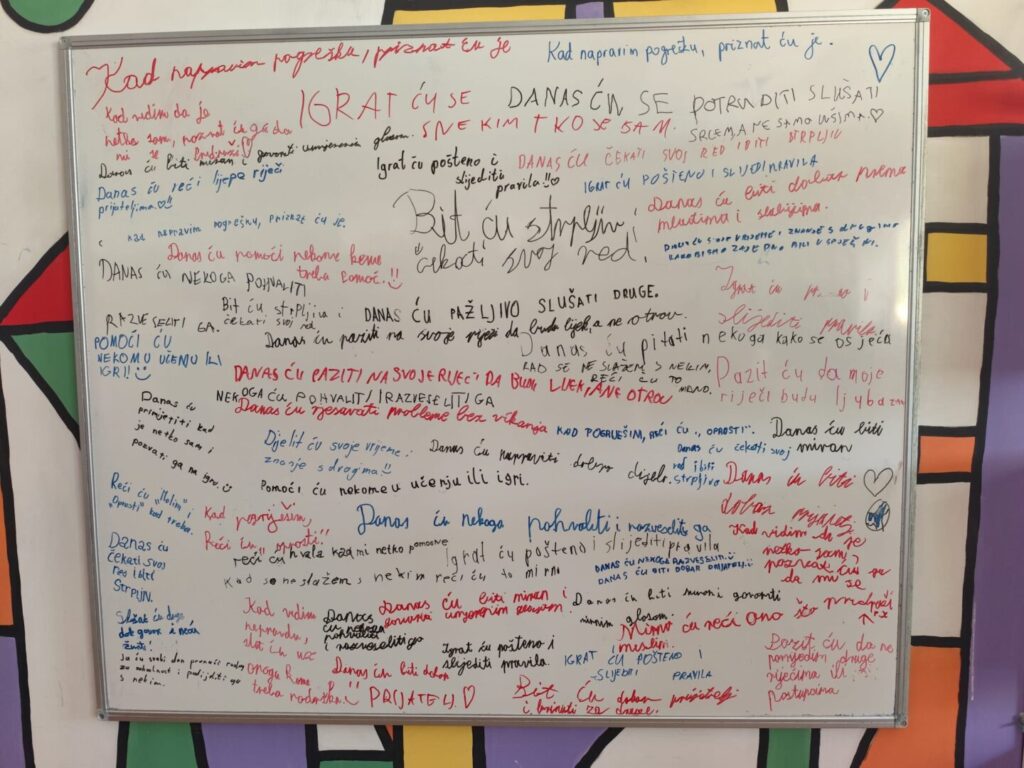 Kad napravim pogrešku, priznat ću je
Kad napravim pogrešku, priznat ću je.
Kad vidim da je
netko sam, pozvat ću ga da
mi se pridruži
IGRAT ĆU SE
S NEKIM TKO JE SAM.
DANAS ĆU SE POTRUDITI SLUŠATI
SRCEM, A NE SAMO UŠIMA.
Danas ću biti miran i govoriti umjerenim glasom.
Danas ću reći lijepe riječi
prijateljima.!!
Igrat ću pošteno i
slijediti
pravila!!
DANAS ĆU ČEKATI SVOJ RED I BITI STRPLJIV
IGRAT ĆU POŠTENO I SLIJEDI PRAVILA
Kad napravim pogrešku, priznat ću je.
Bit ću strpljiv i
čekati svoj red.
Danas ću biti dobar prema
mlađima i slabijima.
Danas ću pomoći nekome kome
treba pomoć.!!
DANAS ĆU NEKOGA POHVALITI
RAZVESELITI GA.
Bit ću strpljiva i
čekati svoj red.
DANAS ĆU PAŽLJIVO SLUŠATI DRUGE.
Igrat ću
slijediti
Danas ću paziti na svoje riječi da budu lijek, a ne otrov.
POMOĆI ĆU
NEKOMU UČENJU ILI
IGRI!
Danas ću pitati nekoga kako se osjeća
KAD SE NE SLAŽEM S NEKIM,
REĆI ĆU TO
MIRNO.
DANAS ĆU PAZITI NA SVOJE RIJEČI DA BUDU LIJEK, A NE OTROV
Pazit ću da moje
riječi budu ljubazne
NEKOGA ĆU POHVALITI I RAZVESELITI GA
Danas ću rješavati probleme bez vikanja
Danas ću
primjetiti kad
je netko sam i
pozvati ga na igru.
KAD POGRIJEŠIM, REĆI ĆU "OPROSTI".
Danas ću biti
miran
Djelit ću svoje vrijeme i
znanje s drugima!!
Danas ću napraviti dobro djelo.
Danas ću čekati svoj
red i biti
strpljiva
Pomoći ću nekome u učenju ili igri.
Danas ću biti
dobar prijatelj
Reći ću "Molim" i
"Oprosti" kad treba.
Kad pogriješim,
Reći ću "oprosti"
Danas ću nekoga pohvaliti i razveseliti ga
Kad vidim da je
netko sam,
pozvat ću ga
da mi se
pridruži
reći ću hvala kada mi netko pomogne
Igrat ću pošteno i slijediti pravila
DANAS ĆU
ČEKATI SVOJ
RED I BITI
STRPLJIV.
DANAS ĆU NEKOGA RAZVESELIM.
DANAS ĆU BITI DOBAR
Kad se ne slažem s nekim reći ću to mirno
Kad vidim
nepravdu,
stat ću uz
onoga kome
treba podrška.
Danas
ću nekoga
pohvaliti
i razveseliti ga
Danas ću biti miran i
govoriti umjerenim glasom
Danas ću biti mirni govoriti
mirnim glasom.
Mirno ću reći ono što
mislim.
Igrat ću pošteno i
slijediti pravila.
IGRAT ĆU POŠTENO I
SLIJEDI PRAVILA
Danas ću biti dobar
PRIJATELJ
Bit ću dobar prijatelj
i brinuti za druge.
Pazit ću da ne
povrijedim druge
riječima ili
postupcima